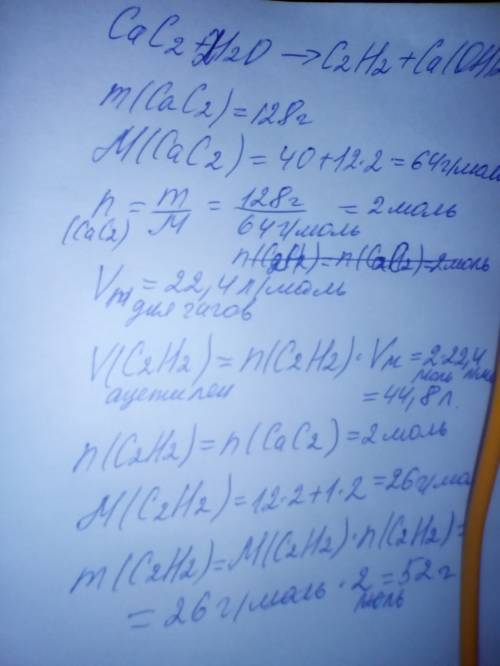 CaC2 + 2H2O → C2H2 + Ca(OH)2
m(CaC2) = 128г
M(CaC2) = 40+12·2 = 64г/моль
n (CaC2) = m/M = 128г/64г/моль = 2моль
n(C2H2) = n(CaC2) = 2моль
Vm = 22,4л/моль
для газов
V(C2H2) = n(C2H2)·Vm = 2моль·22,4
ацетилен = 44,8л.
n(C2H2) = n(CaC2) = 2моль
M(C2H2) = 12·2+1·2 = 26г/мо
m(C2H2) = M(C2H2)·n(C2H2) =
= 26г/моль · 2моль = 52г